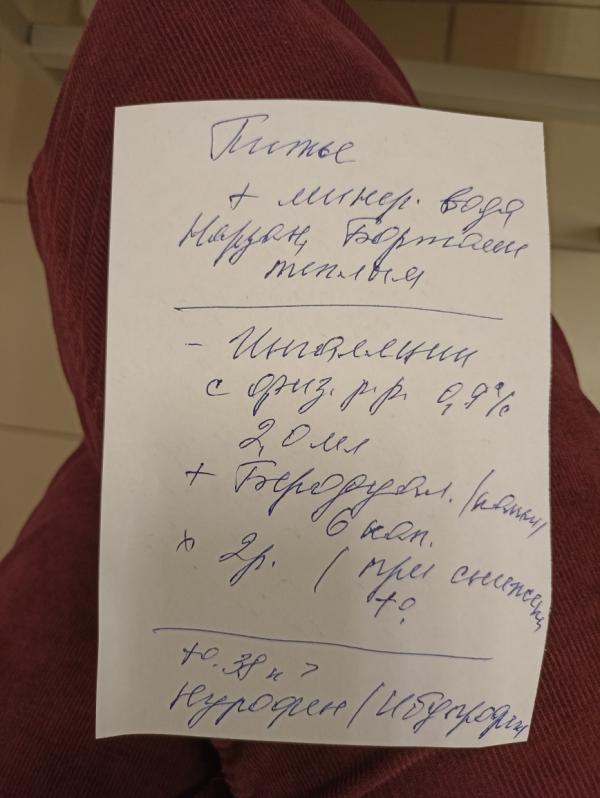 Питье
+ минер. вода
Нарзан, Боржоми
теплыя
- Ингаляции
с физ. р.р. 0,9%
2,0 мл
+ Беродуал. (капли)
6 кап.
x 2р. (при снижении
t°.
t°. 38 и >
Нурофен / Ибупрофен